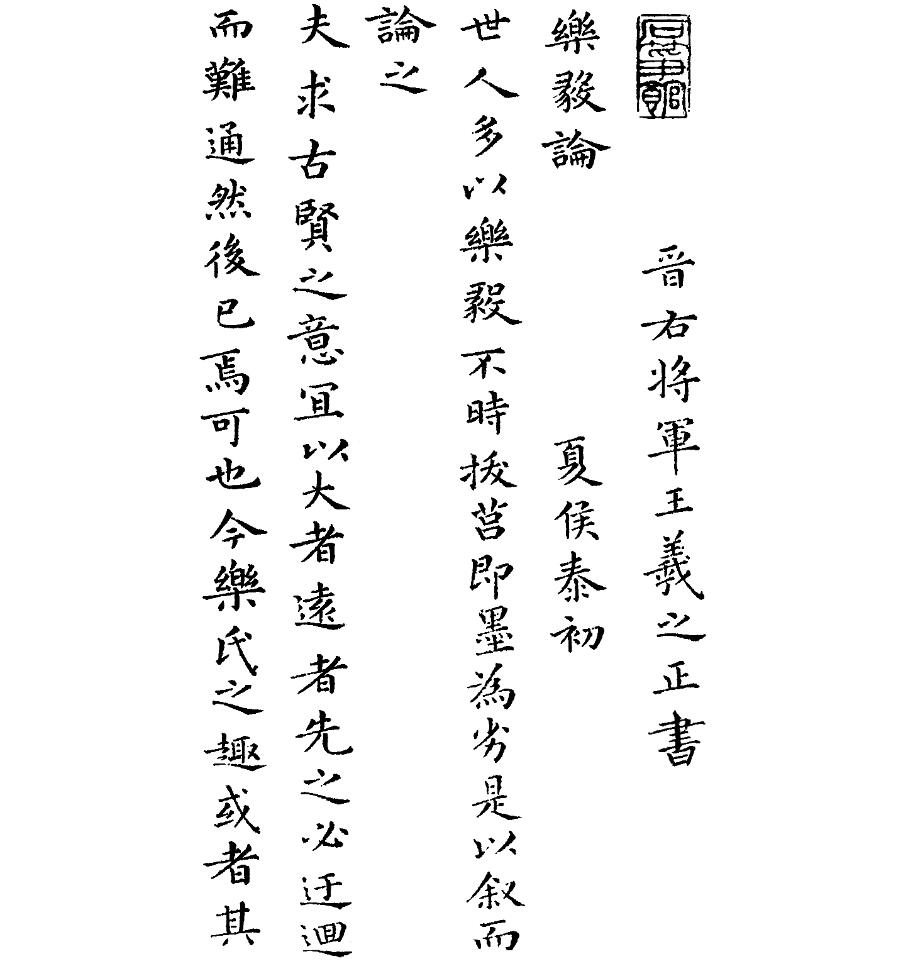 晋右将軍王羲之正書
樂毅論 夏侯泰初
世人多以樂毅不時拔莒即墨為劣是以叙而
論之
夫求古賢之意宜以大者遠者先之必迂迴
而難通然後已焉可也今樂氏之趣或者其